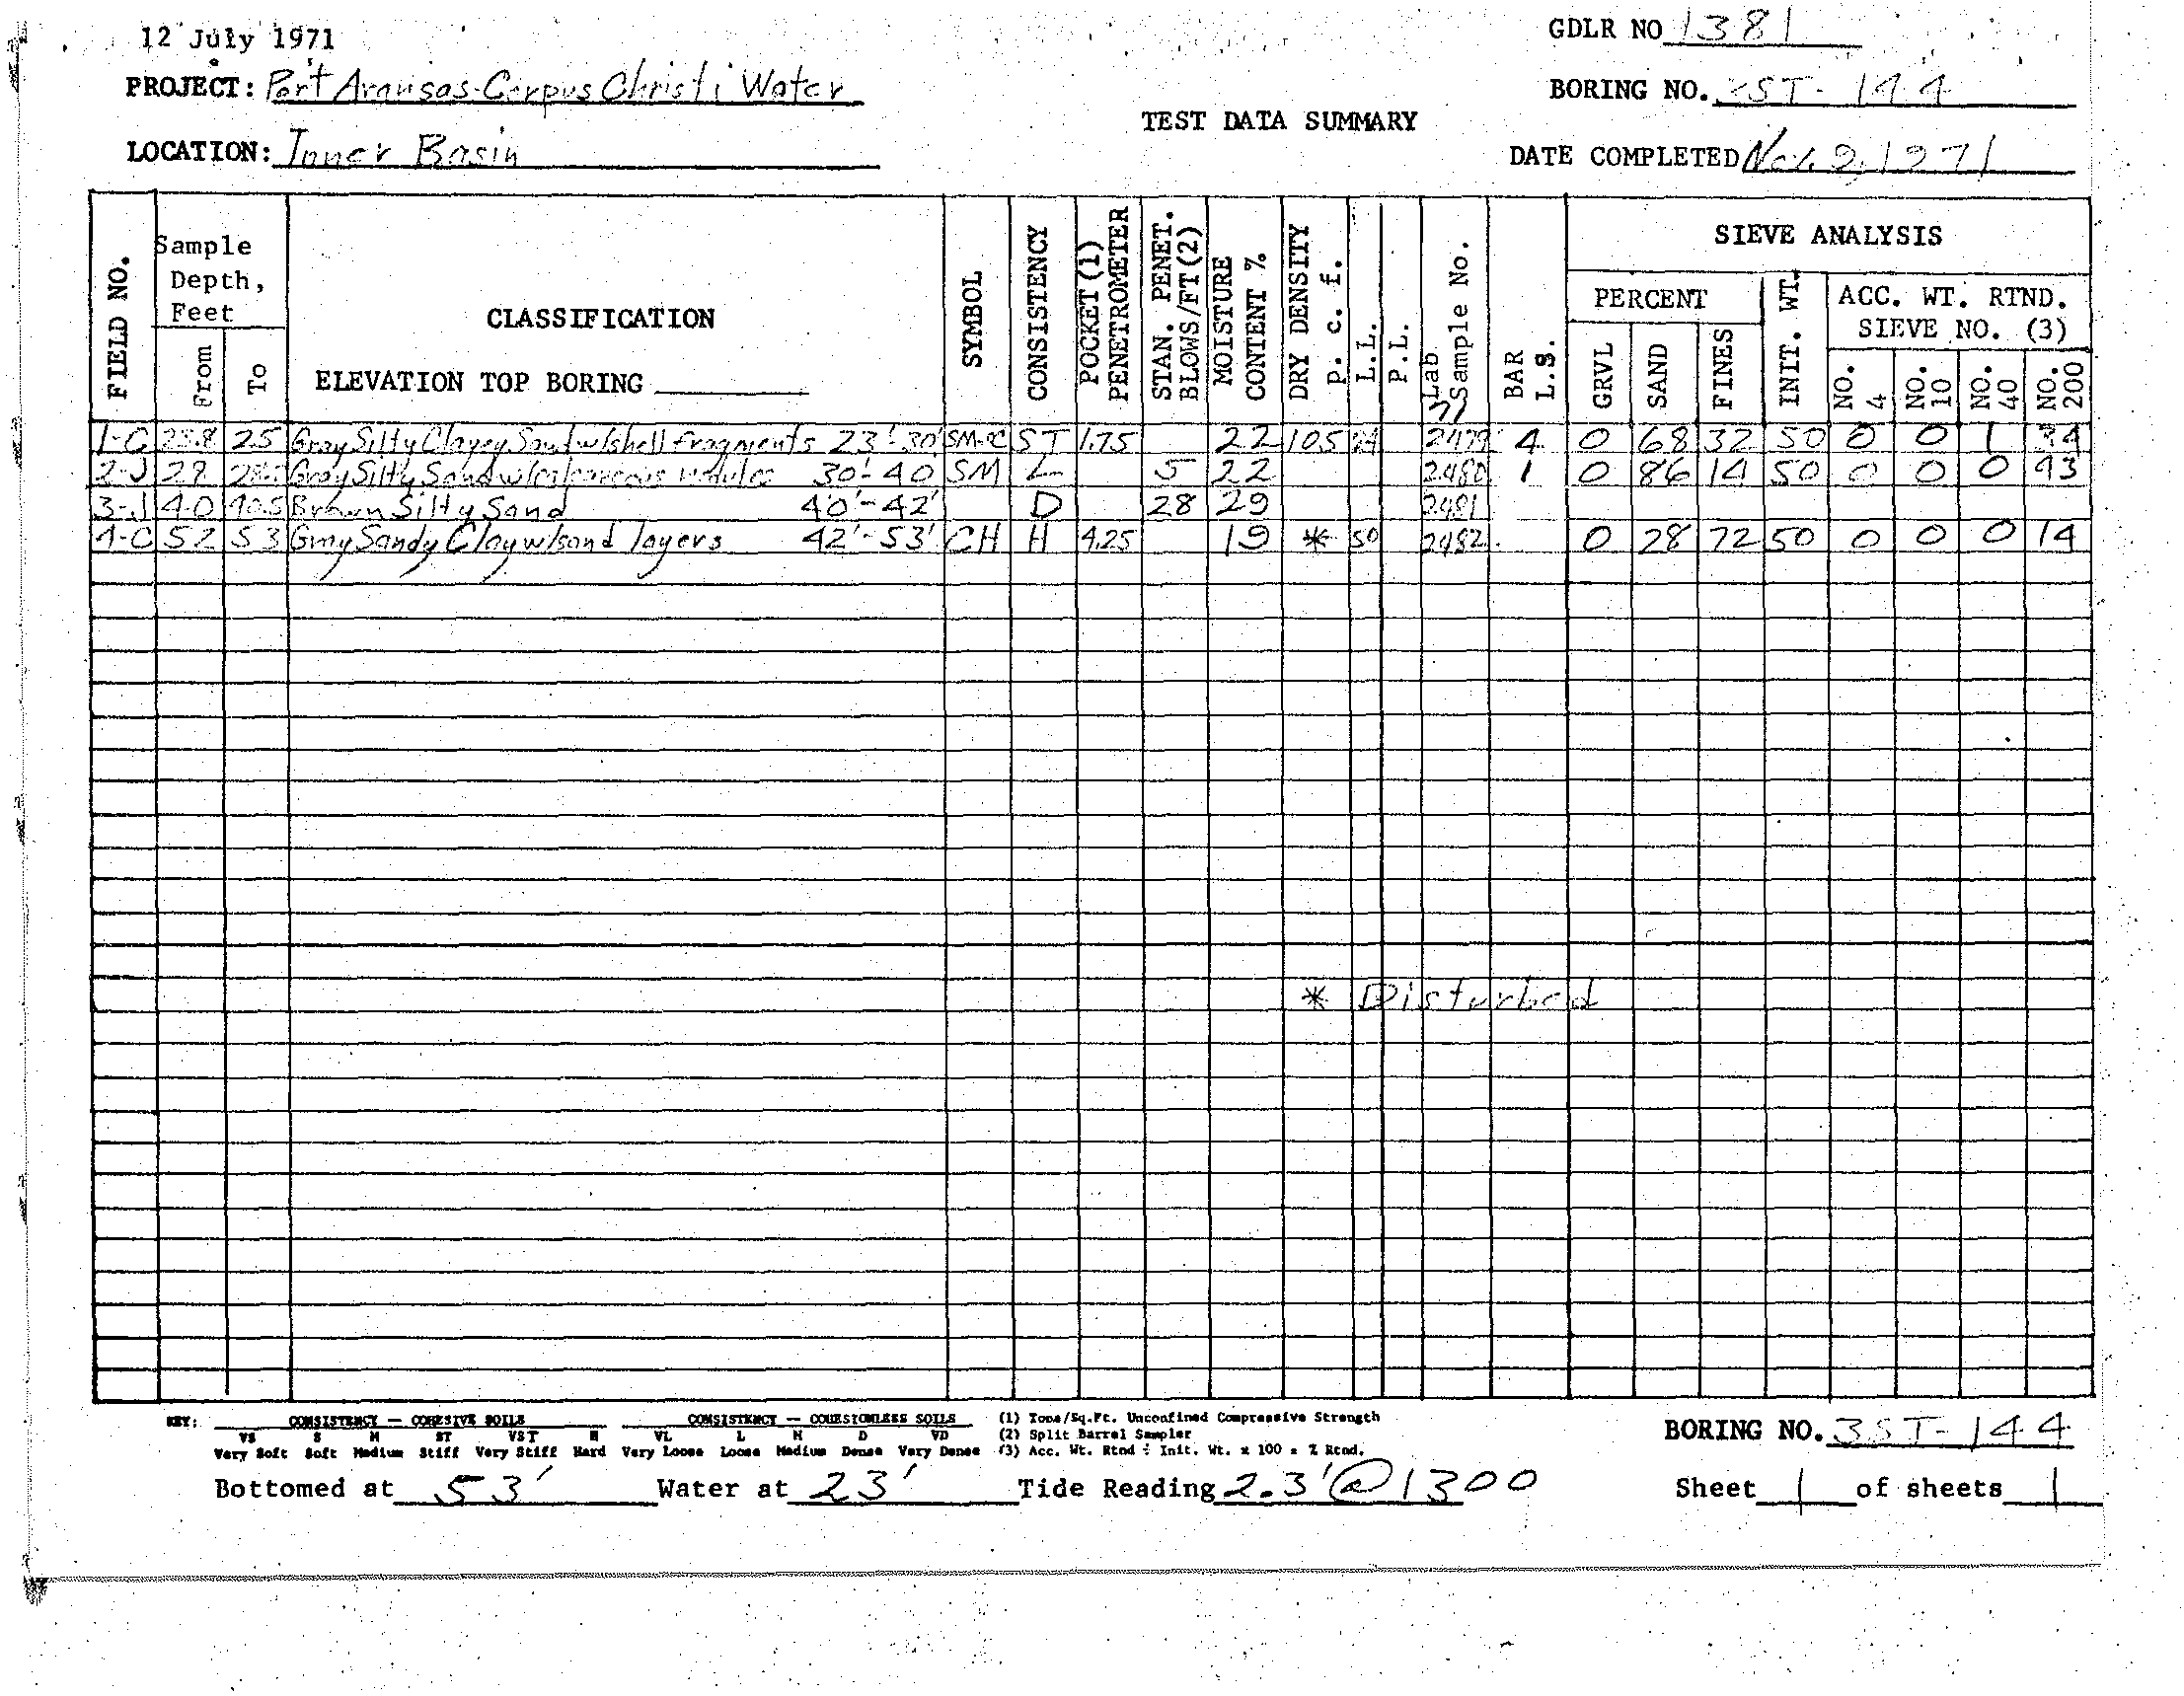 12 July 1971
GDLR NO 1381
PROJECT: Port Aransas-Corpus Christi Water
BORING NO. 3ST-144
TEST DATA SUMMARY
LOCATION: Inner Basin
DATE COMPLETED Nov. 2, 1971
FIELD NO.
Sample Depth, Feet
From
To
CLASSIFICATION
ELEVATION TOP BORING
SYMBOL
CONSISTENCY
POCKET (1) PENETROMETER
STAN. PENET. BLOWS/FT (2)
MOISTURE CONTENT %
DRY DENSITY P. c. f.
L.L.
P.L.
Lab Sample No.
71
BAR L.S.
SIEVE ANALYSIS
PERCENT
GRVL
SAND
FINES
INIT. WT.
ACC. WT. RTND. SIEVE NO. (3)
NO. 4
NO. 10
NO. 40
NO. 200
1-C 23.8 25 Gray Silty Clayey Sand w/shell fragments 23'-30' SM-SC ST 1.75 22 105 2479 4 0 68 32 50 0 0 1 34
2-J 28 Gray Silty Sand w/calcareous nodules 30'-40 SM L 5 22 2480 1 0 86 14 50 0 0 0 43
3-J 40 40.5 Brown Silty Sand 40'-42' D 28 29 2481
4-C 52 53 Gray Sandy Clay w/sand layers 42'-53' CH H 4.25 19 * 50 2482 0 28 72 50 0 0 0 14
* Disturbed
KEY: CONSISTENCY — COHESIVE SOILS CONSISTENCY — COHESIONLESS SOILS (1) Tons/Sq.Ft. Unconfined Compressive Strength
VS S M ST VST H VL L M D VD (2) Split Barrel Sampler
Very Soft Soft Medium Stiff Very Stiff Hard Very Loose Loose Medium Dense Very Dense (3) Acc. Wt. Rtnd ÷ Init. Wt. x 100 = % Rtnd.
BORING NO. 3ST-144
Bottomed at 53' Water at 23' Tide Reading 2.3' @ 1300 Sheet 1 of sheets 1